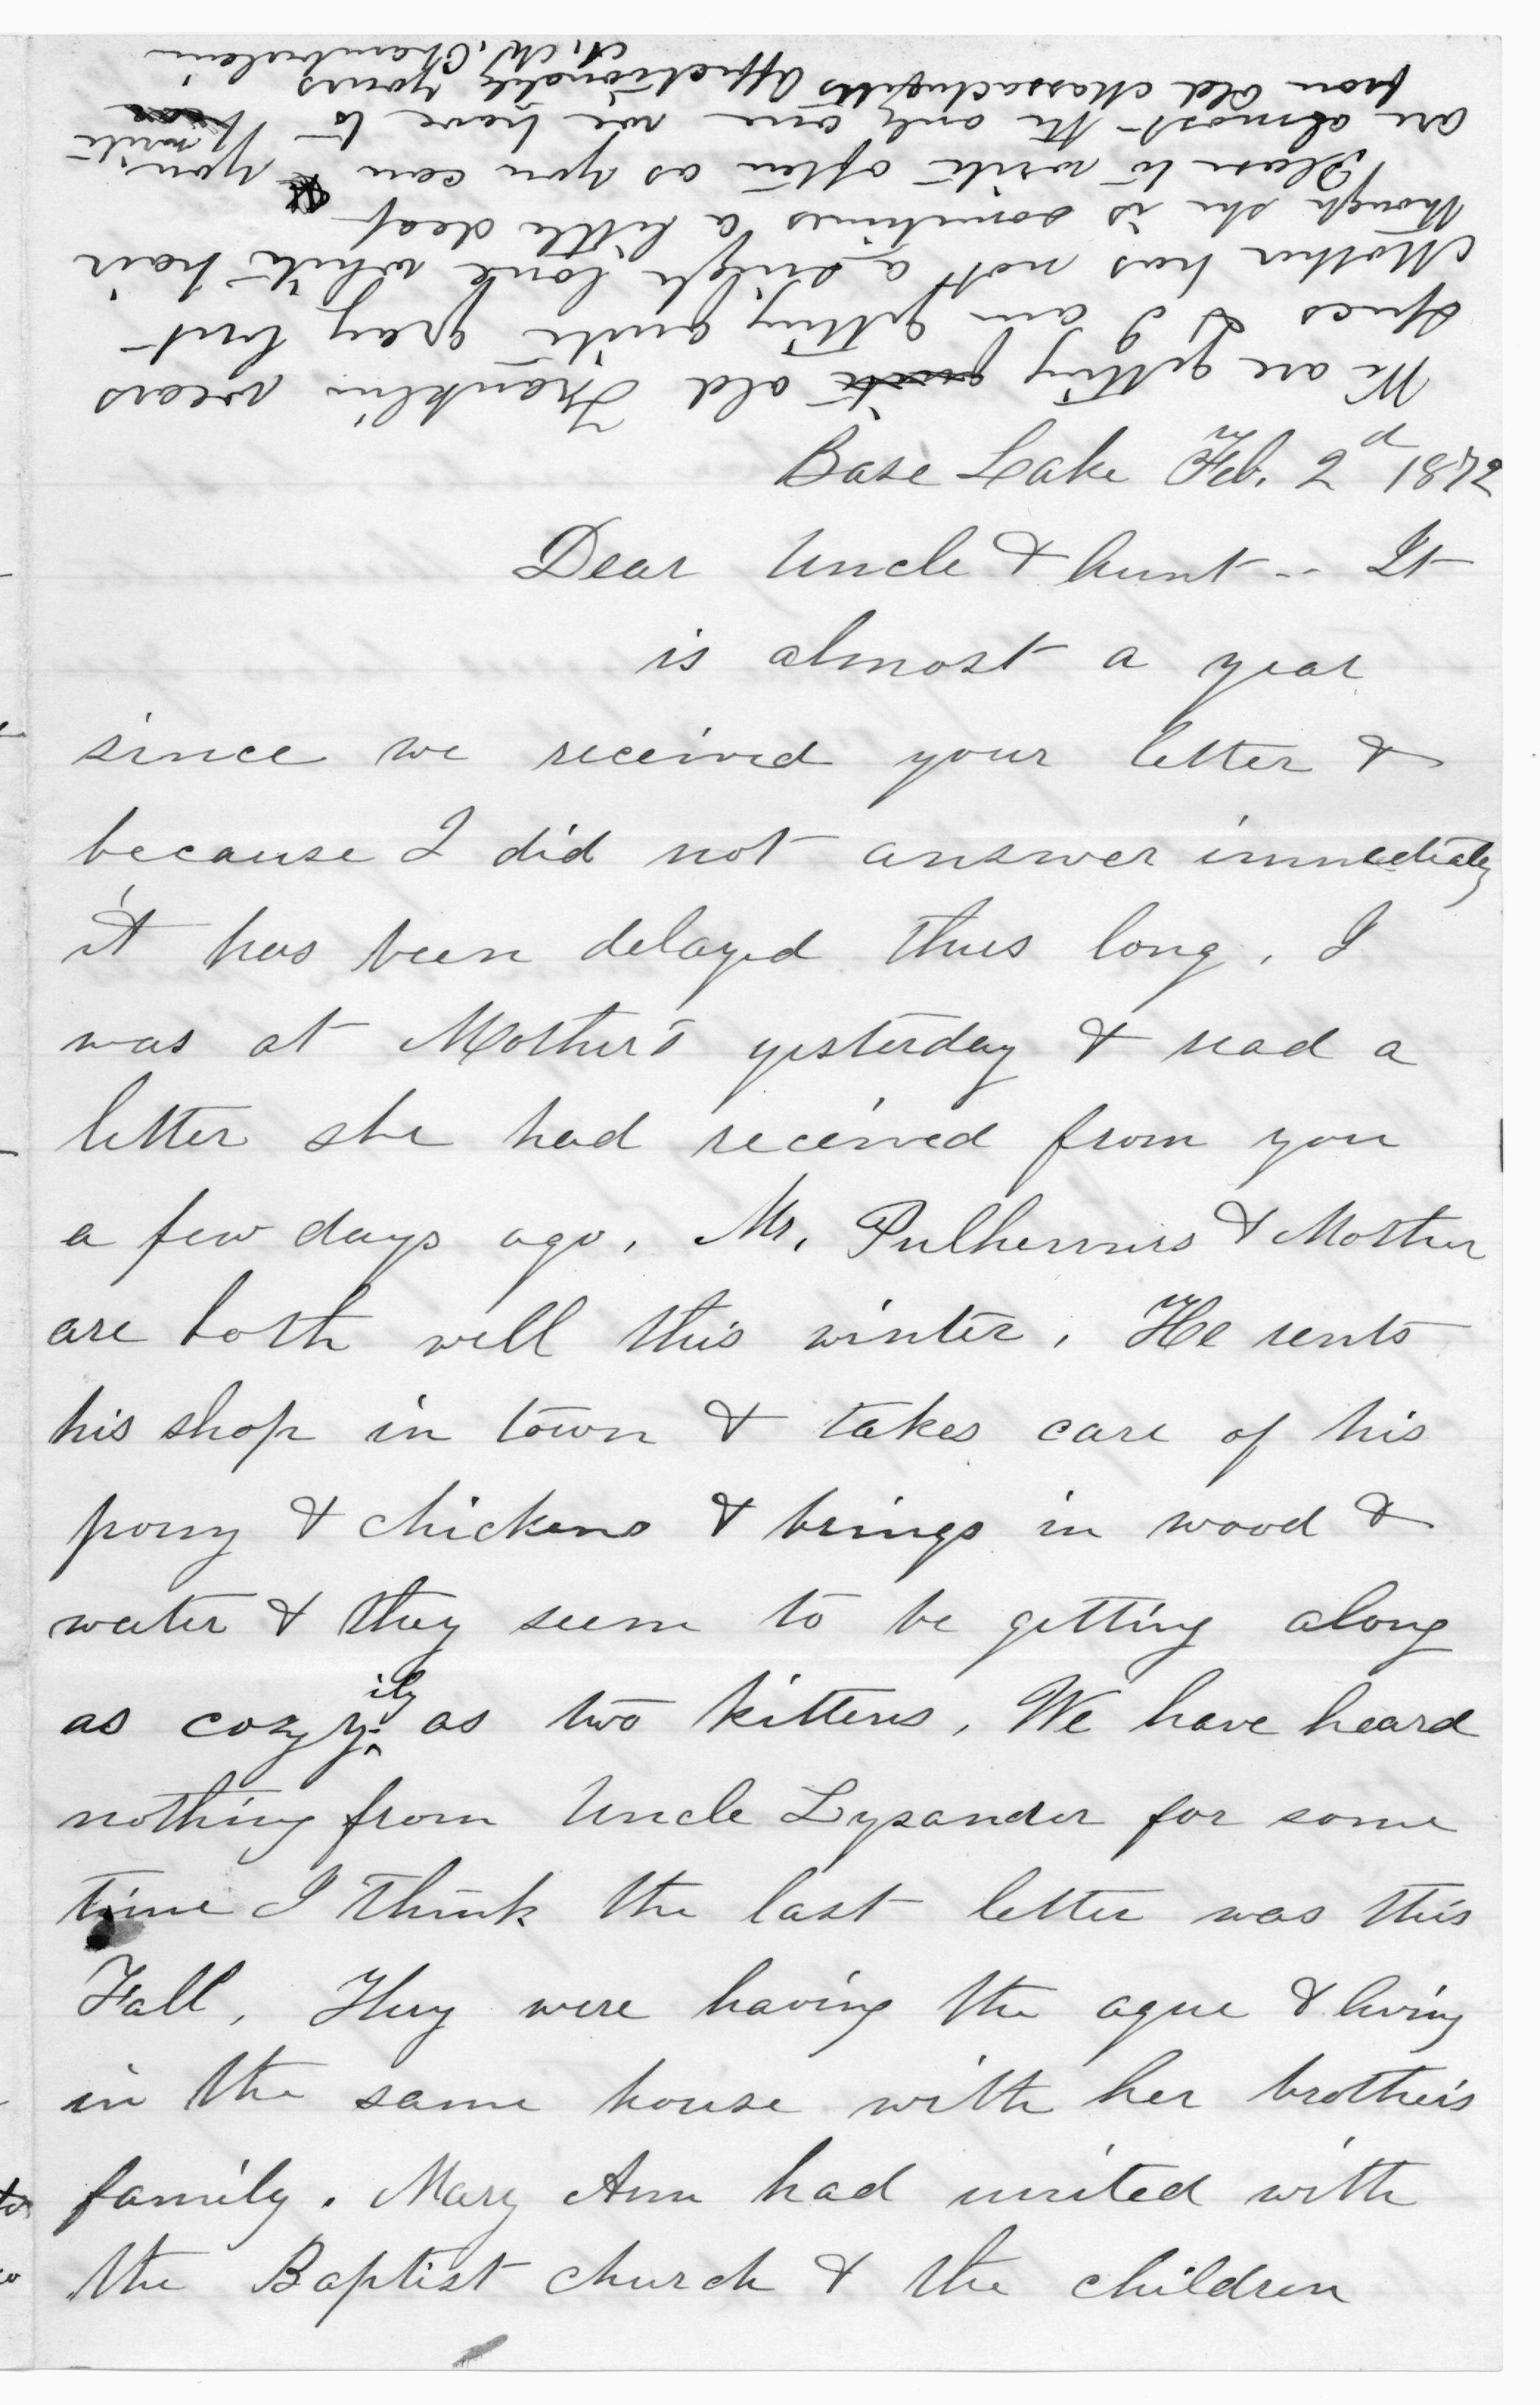 Base Lake Feb. 2d 1872
Dear Uncle & Aunt -- It
is almost a year
since we received your letter &
because I did not answer immediately
it has been delayed thus long. I
was at Mother's yesterday & read a
letter she had received from you
a few days ago. Mr. & Mother
are both well this winter. He rents
his shop in town & takes care of his
pony & chickens & brings in wood &
water & they seem to be getting along
as cozyily as two kittens. We have heard
nothing from Uncle Lysander for some
time I think the last letter was this
Fall. They were having the ague & living
in the same house with her brother's
family. Mary Ann had united with
the Baptist church & the children
We are getting quite old Franklin wears
specs & I am getting quite gray but
Mother has not a single lone white hair
though she is sometimes a little deaf
Please to write often as you can you
are almost the only one we have to write
from old Massachusetts Affectionately yours
A. M. Chamberlain